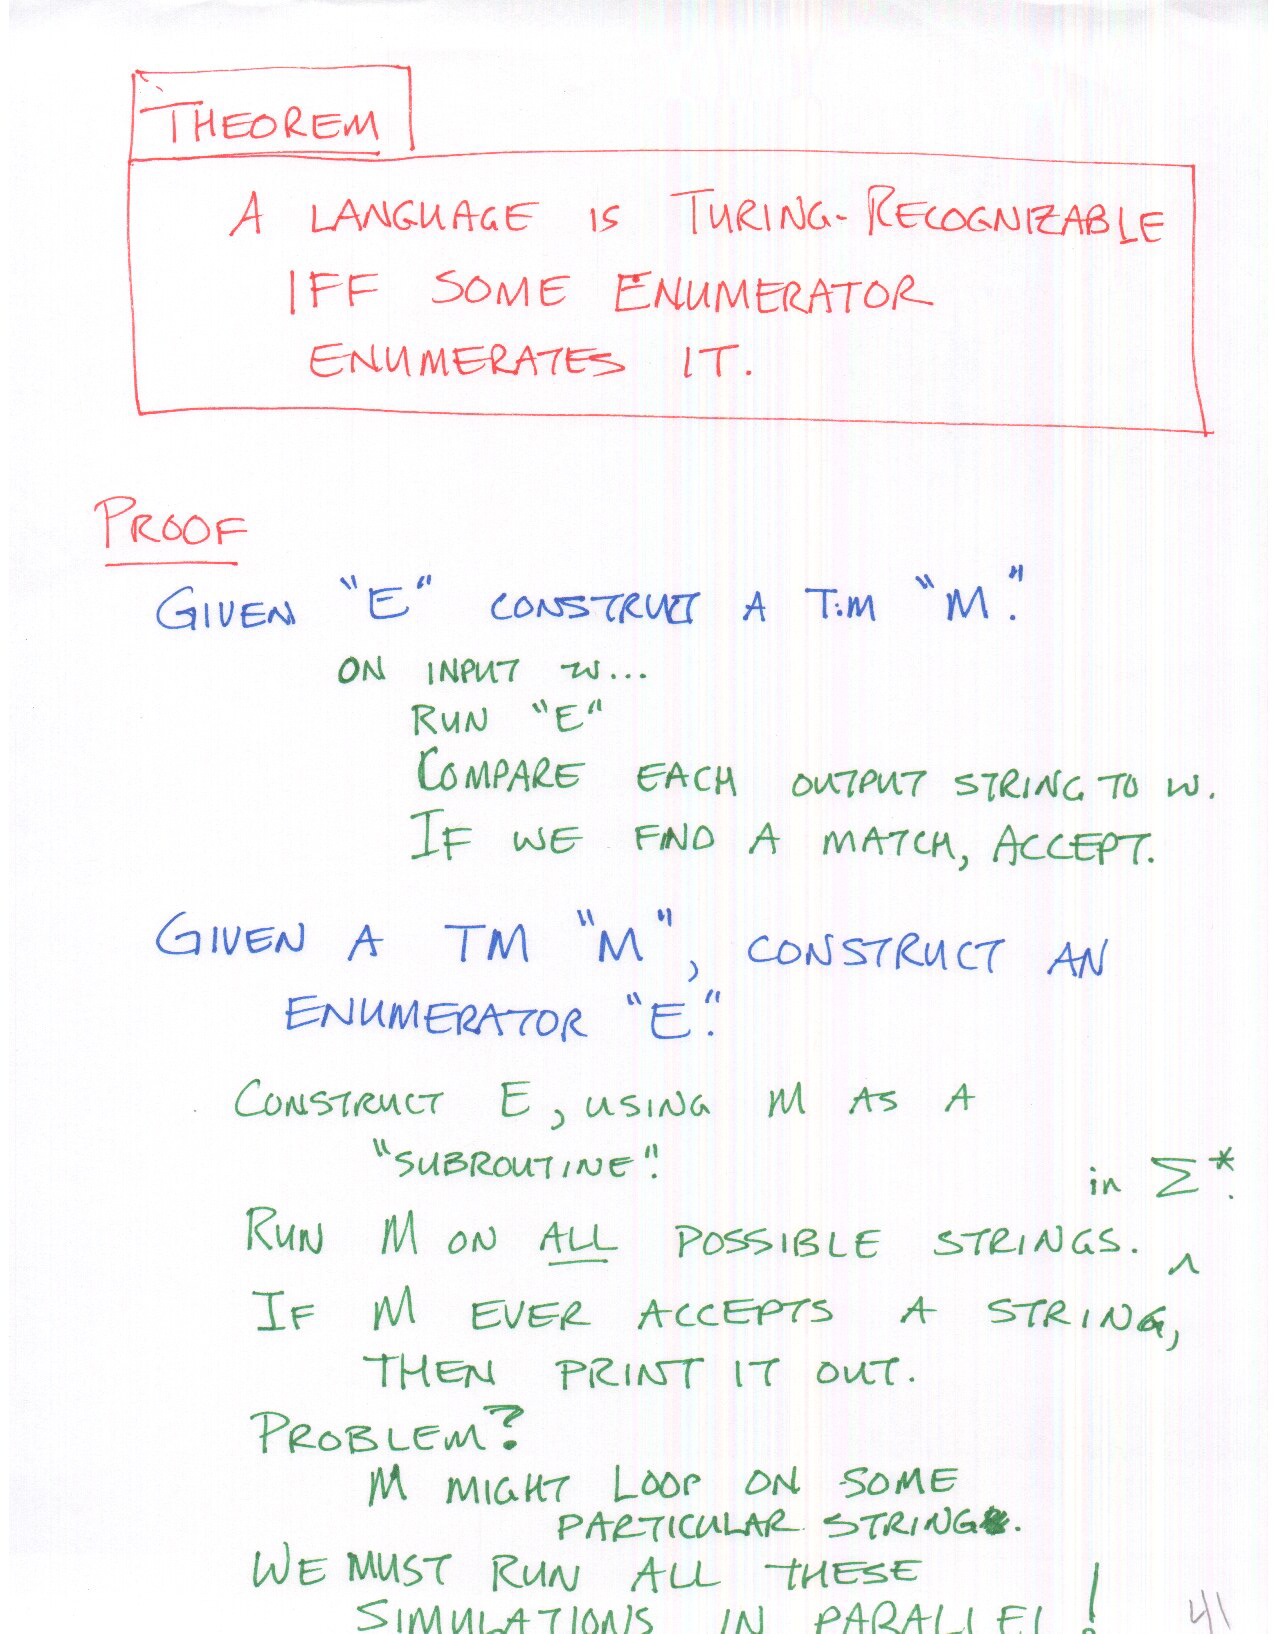 THEOREM
A LANGUAGE IS TURING-RECOGNIZABLE
IFF SOME ENUMERATOR
ENUMERATES IT.
PROOF
GIVEN "E" CONSTRUCT A T.M "M."
ON INPUT w...
RUN "E"
COMPARE EACH OUTPUT STRING TO w.
IF WE FIND A MATCH, ACCEPT.
GIVEN A TM "M", CONSTRUCT AN
ENUMERATOR "E".
CONSTRUCT E, USING M AS A
"SUBROUTINE".
in Σ*.
RUN M ON ALL POSSIBLE STRINGS. ^
IF M EVER ACCEPTS A STRING,
THEN PRINT IT OUT.
PROBLEM?
M MIGHT LOOP ON SOME
PARTICULAR STRING.
WE MUST RUN ALL THESE
SIMULATIONS IN PARALLEL!
41